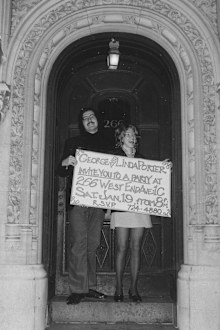 266
GEORGE & LINDA PORTER
INVITE YOU TO A PARTY AT
266 WEST END AVE., 1C
SAT. JAN. 19, FROM 8 P.
R.S.V.P. 724-4880